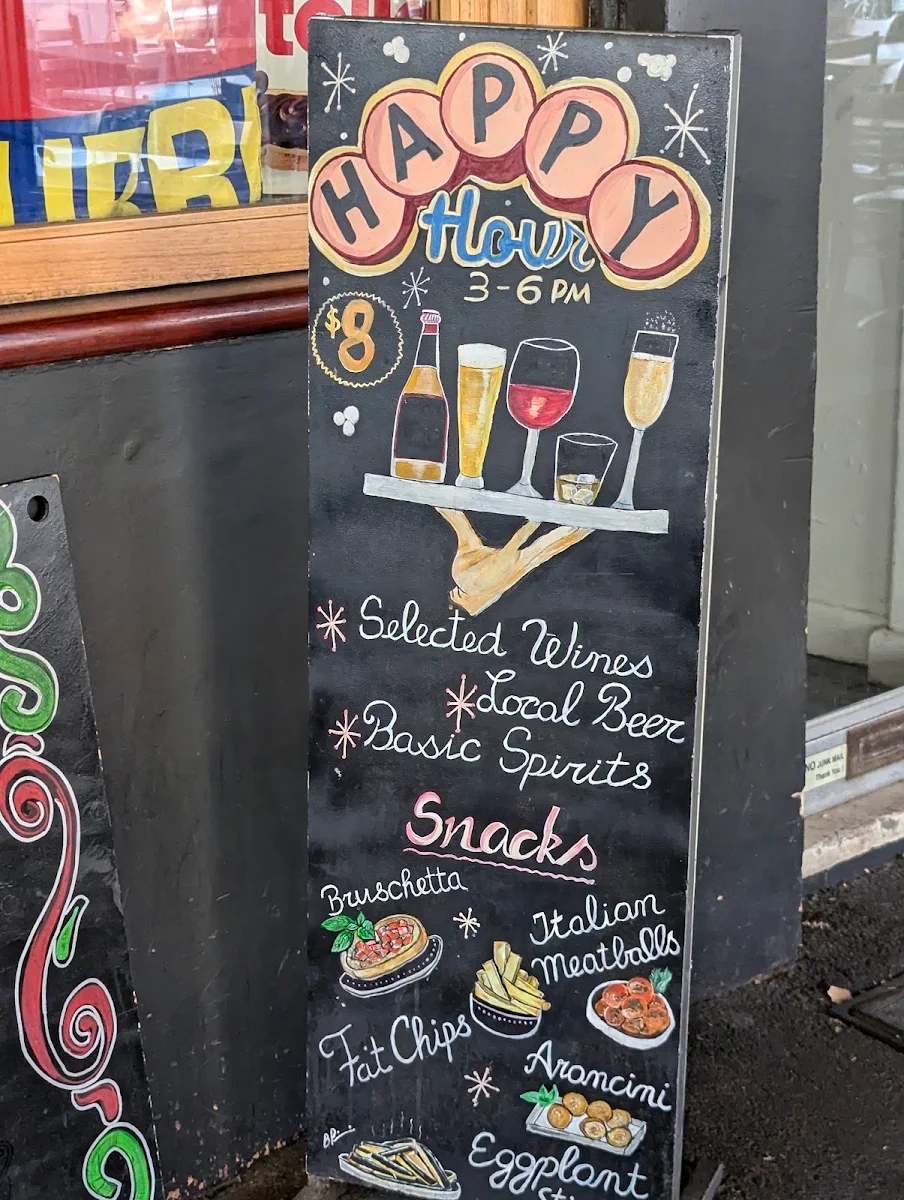 HAPPY
Hour
3-6 PM
$8
* Selected Wines
* Local Beer
* Basic Spirits
Snacks
Bruschetta
Italian
Meatballs
Fat Chips
Arancini
Eggplant
NO JUNK MAIL
Thank You